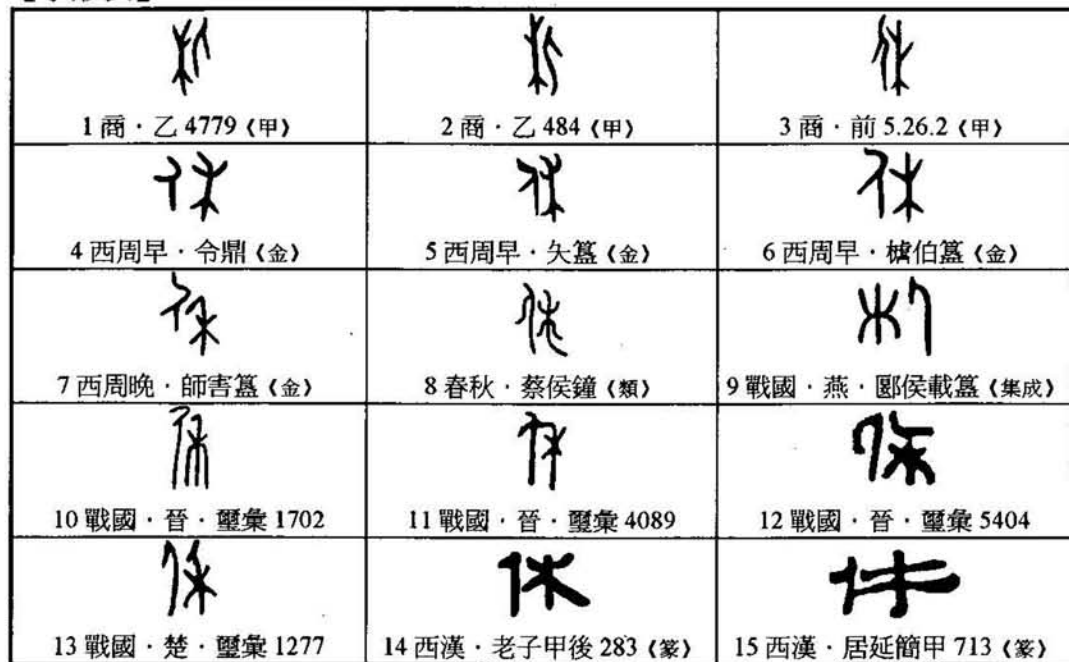 1 商·乙 4779《甲》
2 商·乙 484《甲》
3 商·前 5.26.2《甲》
4 西周早·令鼎《金》
5 西周早·夨簋《金》
6 西周早·𣪘伯簋《金》
7 西周晚·師害簋《金》
8 春秋·蔡侯鐘《類》
9 戰國·燕·郾侯載簋《集成》
10 戰國·晉·璽彙 1702
11 戰國·晉·璽彙 4089
12 戰國·晉·璽彙 5404
13 戰國·楚·璽彙 1277
14 西漢·老子甲後 283《篆》
15 西漢·居延簡甲 713《篆》